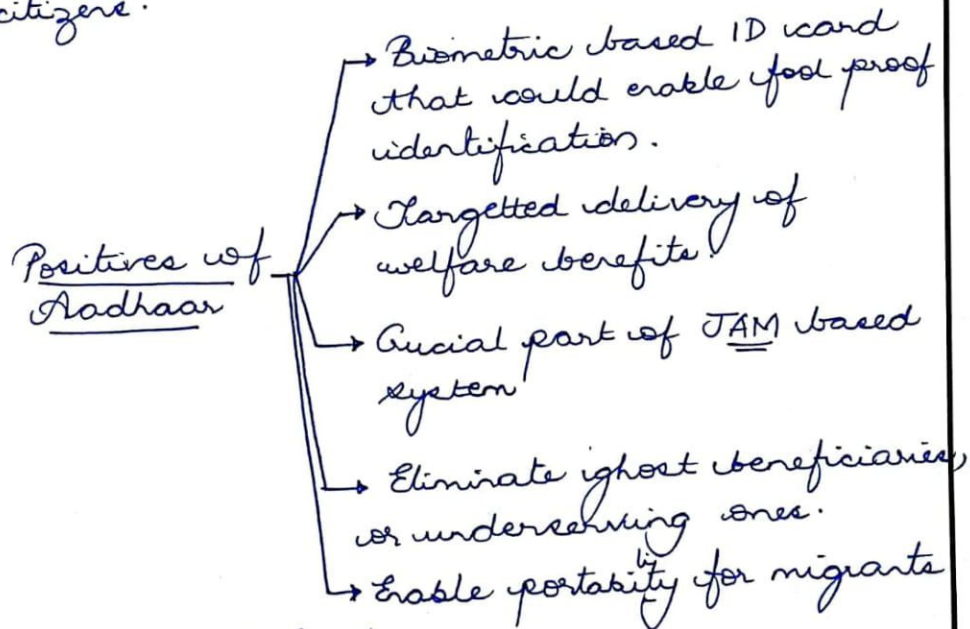 citizens.
Biometric based ID card
that would enable fool proof
identification.
Targetted delivery of
welfare benefits.
Positives of
Aadhaar
Crucial part of JAM based
system
Eliminate ghost beneficiaries,
or underserving ones.
Enable portability for migrants